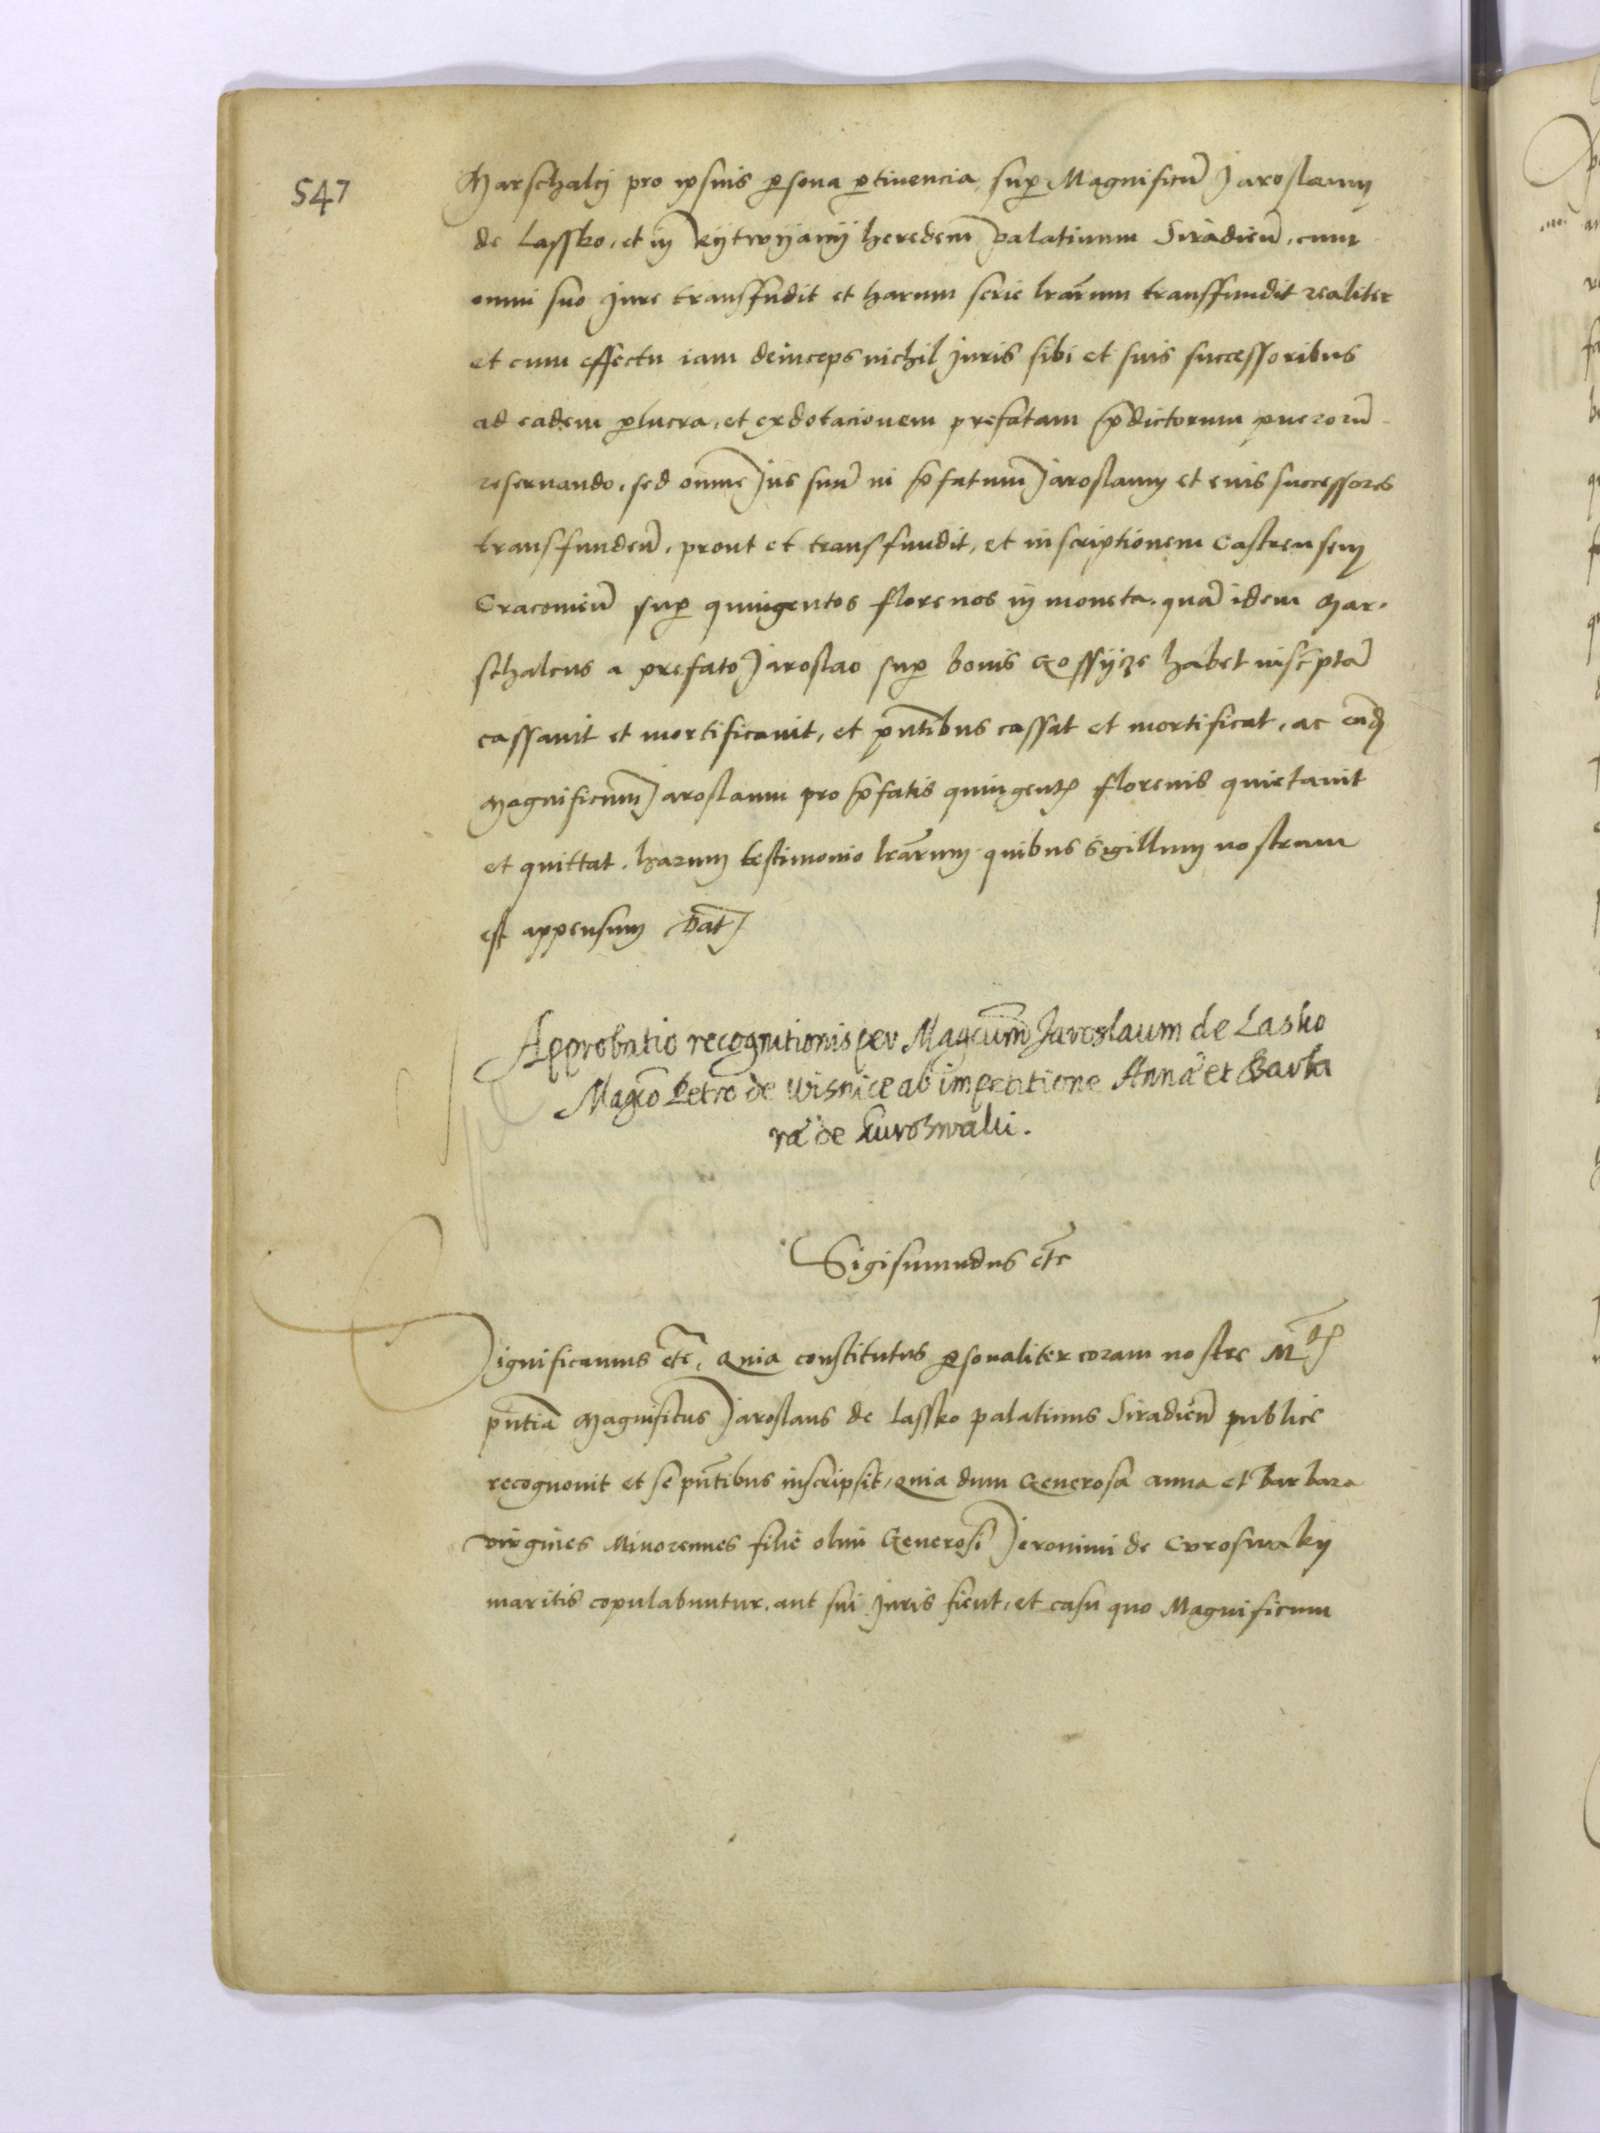 547
Marschalci pro ipsius p̲sona p̲tinencia, sup̲ Magnificū Jaroslaum
de Lassko, et in Rytwyany heredem palatinum Siradień, cum
omni suo jure transfudit et harum serie lr̄arum transfundit realiter
et cum effectu iam deinceps nichil juris sibi et suis successoribus
ad eadem p̲lucra, et exdotacionem prefatam p̄dictorum puerorū
reservando, sed omne jus suū in p̄fatum Jaroslaum et eius successores
transfundeñ, prout et transfundit, et inscriptionem Castrensem
Cracovieñ sup̲ quingentos florenos in moneta, quā idem Mar-
schalcus a prefato Jaroslao sup̲ bonis Gossyze habet inscr̄ptā
cassavit et mortificavit, et pn̄tibus cassat et mortificat, ac eūd
Magnificum Jaroslaum pro p̄fatis quingent florenis quietavit
et quittat, harum testimonio lr̄arum quibus sigillum nostrum
est appensum Dat̄
Approbatio recognitionis per Magcum̄ Jaroslaum de Lasko
Magco̅ Petro de Wisnice ab impetitione Annæ et Barba
ræ de Kuroswaki.
Sigismundus etc̄
Significamus etc̄, Quia constitutus p̲sonaliter coram nostre Mtis
pn̄tia Magnificus Jaroslaus de Lassko palatinus Siradień publice
recognovit et se pn̄tibus inscripsit, Quia dum Generosa Anna et Barbara
virgines Minorennes filie olim Generosi Jeronimi de Curoswaky
maritis copulabuntur, aut sui juris fient, et casu quo Magnificum